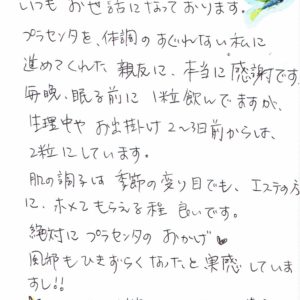 いつも お世話になっております。
プラセンタを、体調のすぐれない私に
進めてくれた 親友に、本当に感謝です
毎晩、眠る前に 1粒飲んでますが、
生理中や お出掛け 2〜3日前からは、
2粒にしています。
肌の調子は 季節の変り目でも、エステの方
に、ホメてもらえる程 良いです。
絶対に プラセンタの おかげ♥
風邪もひきずらくなったと 実感していま
すし!!